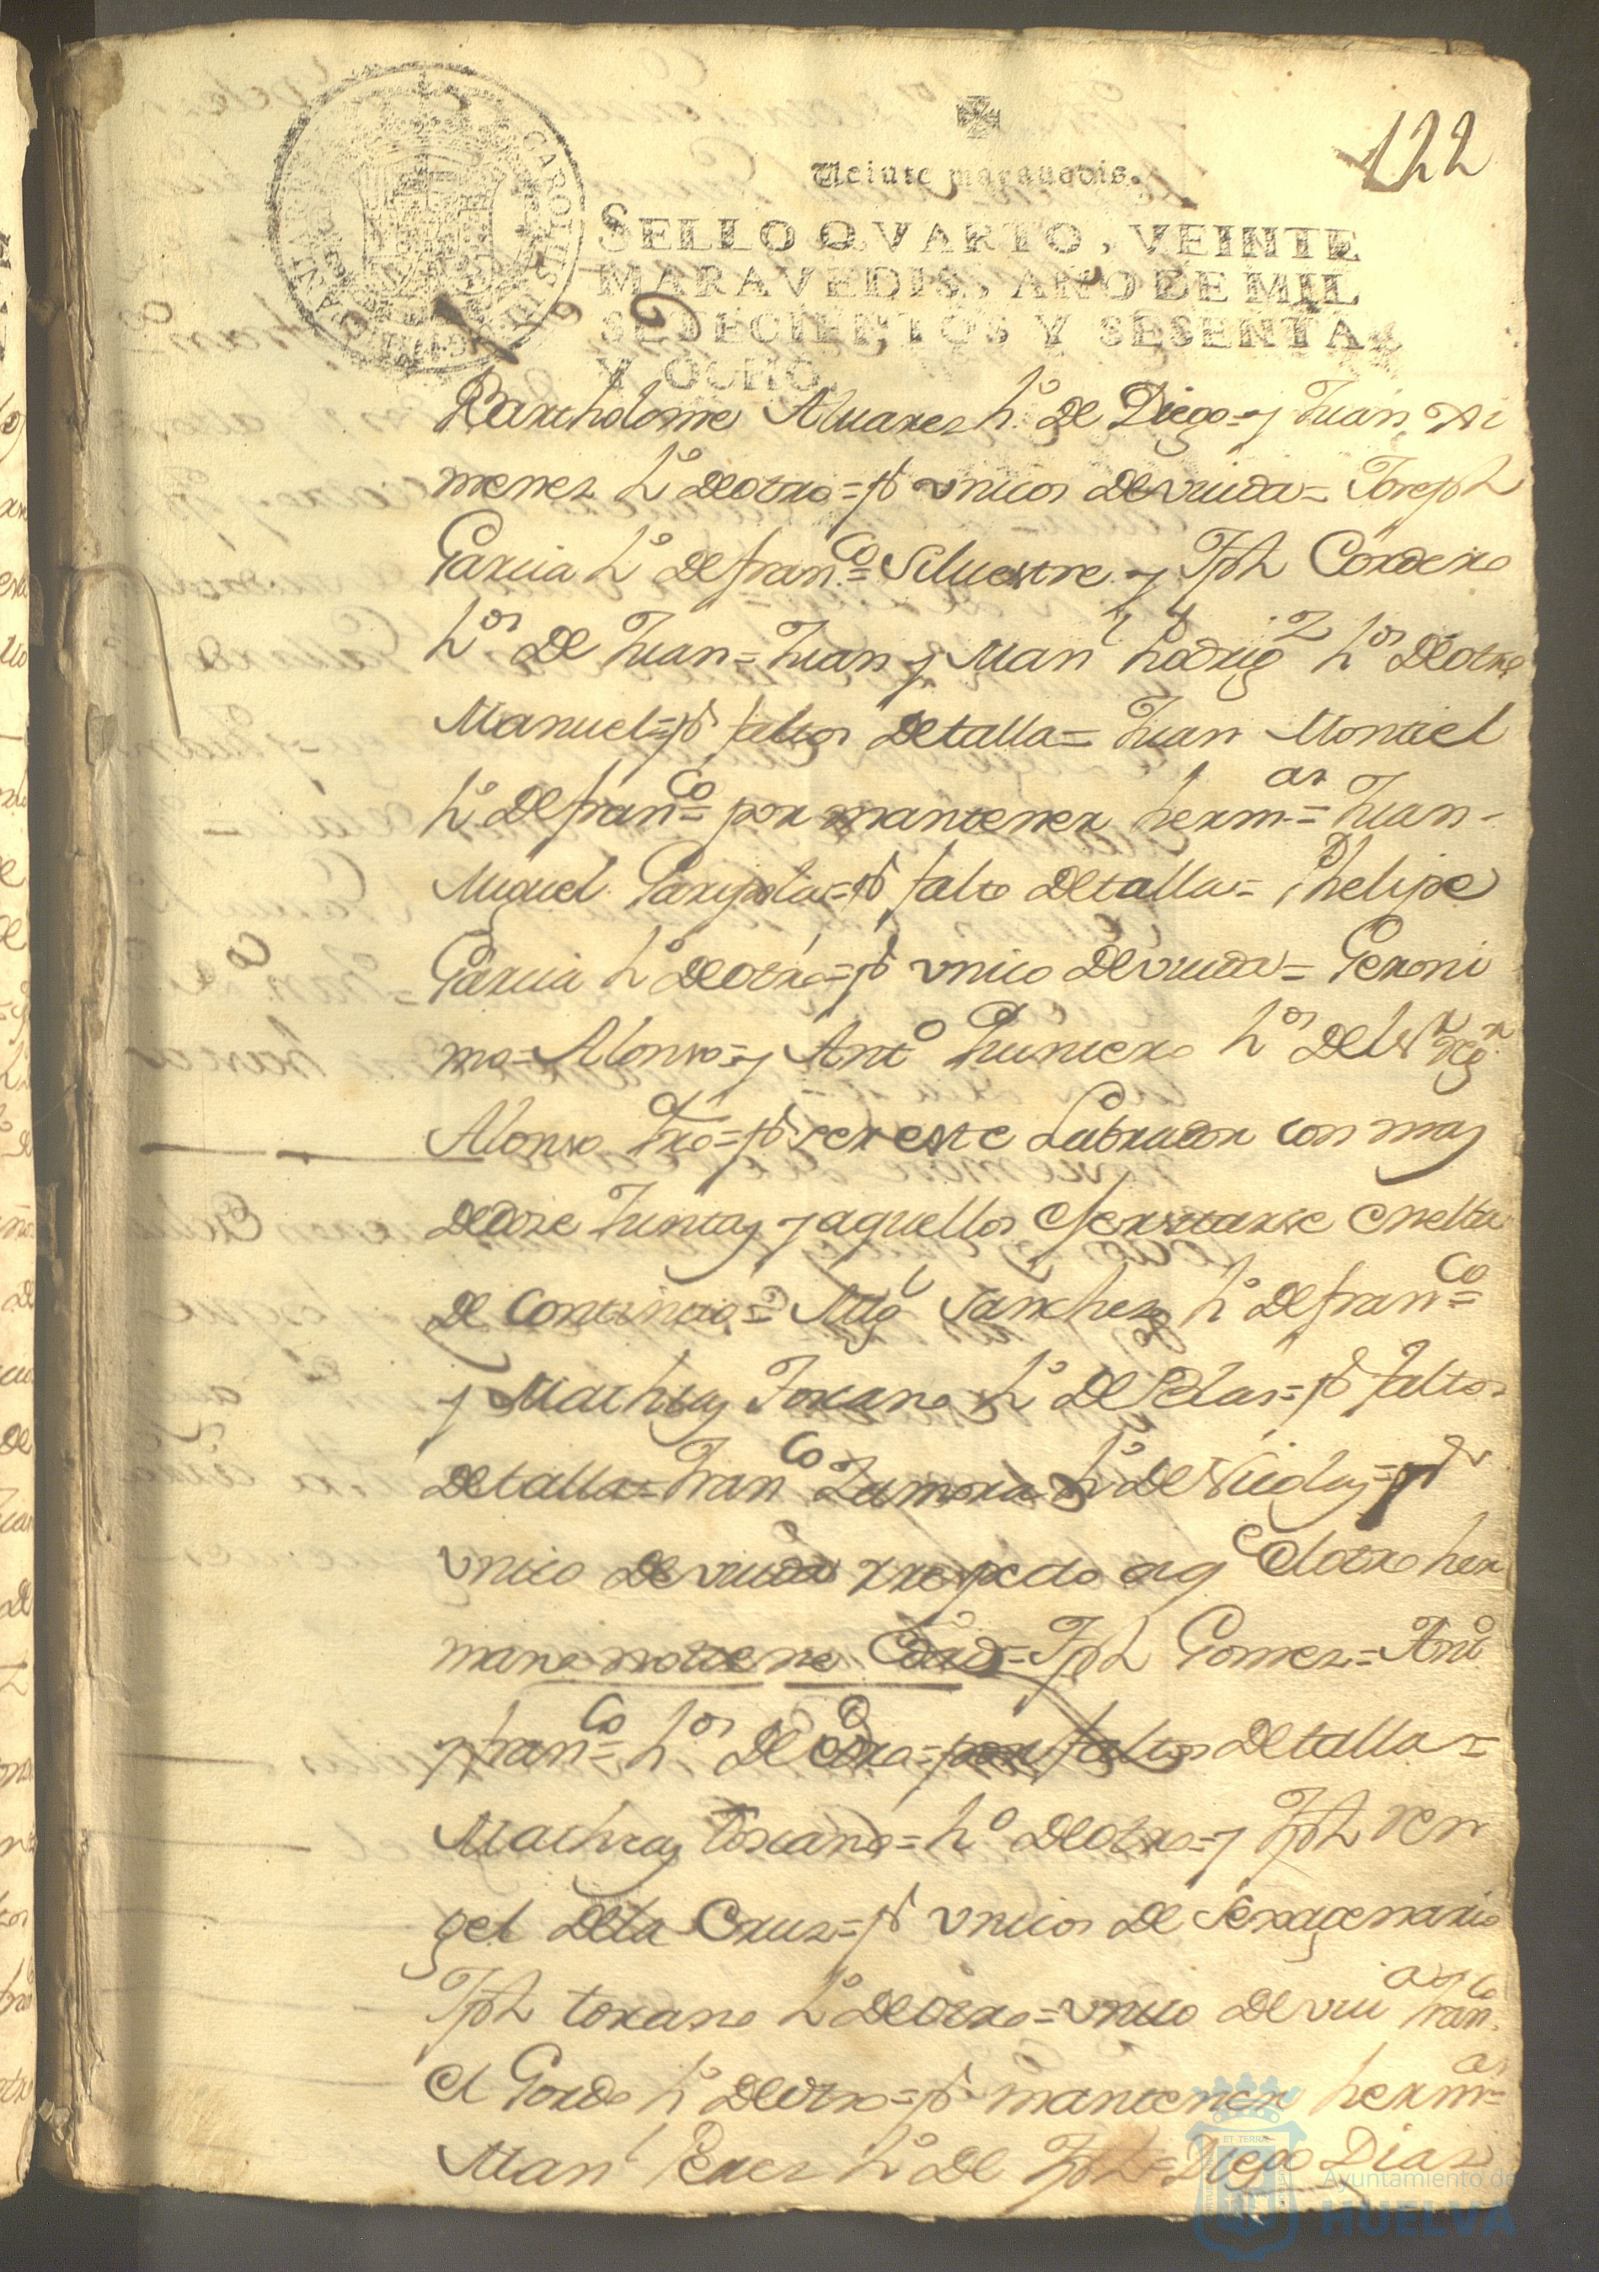 122
Veinte marauedis.
SELLO QVARTO, VEINTE
MARAVEDIS, AÑO DE MIL
SETECIENTOS Y SESENTA
Y OCHO.
Bartholome Aluarez hº de Diego = y Juan Xi
menez hº de otro = pr vnicos de viuda = Joseph
Garcia hº de franco = Siluestre y Jph Cordero
hos de Juan = Juan y Manl Rodrigz hos de otro
Manuel = pr faltos de talla = Juan Montiel
hº de franco = por mantener hermas = Juan
Miguel = pr falto de talla = Phelipe
Garcia hº de otro = pr vnico de viuda = Geroni
mo = Alonso = y Antº Quintero hos del
Alonso = pr ser este Labrador con mas
de doze Juntas y aquellos exersitarse en ella
de Continuo = Migl Sanchez hº de franco =
y Mathias Toscano hº de Blas = pr faltos
de talla = Franco Zamora hº de Nicolas = pr
vnico de viuda respecto a qe el otro her
mano no tiene Edad = Jph Gomez = Antº
y franco = hos de otro = por faltos de talla =
Mathias toscano = hº de otro = y Jph Ren
gel de la Cruz = pr vnicos de Sexagenario
Jph toscano hº de otro = vnico de viua = franco
el Gordo hº de otro = pr mantener hermas =
Manl Perez hº de Jph = Diego Diaz
Ayuntamiento de
HUELVA